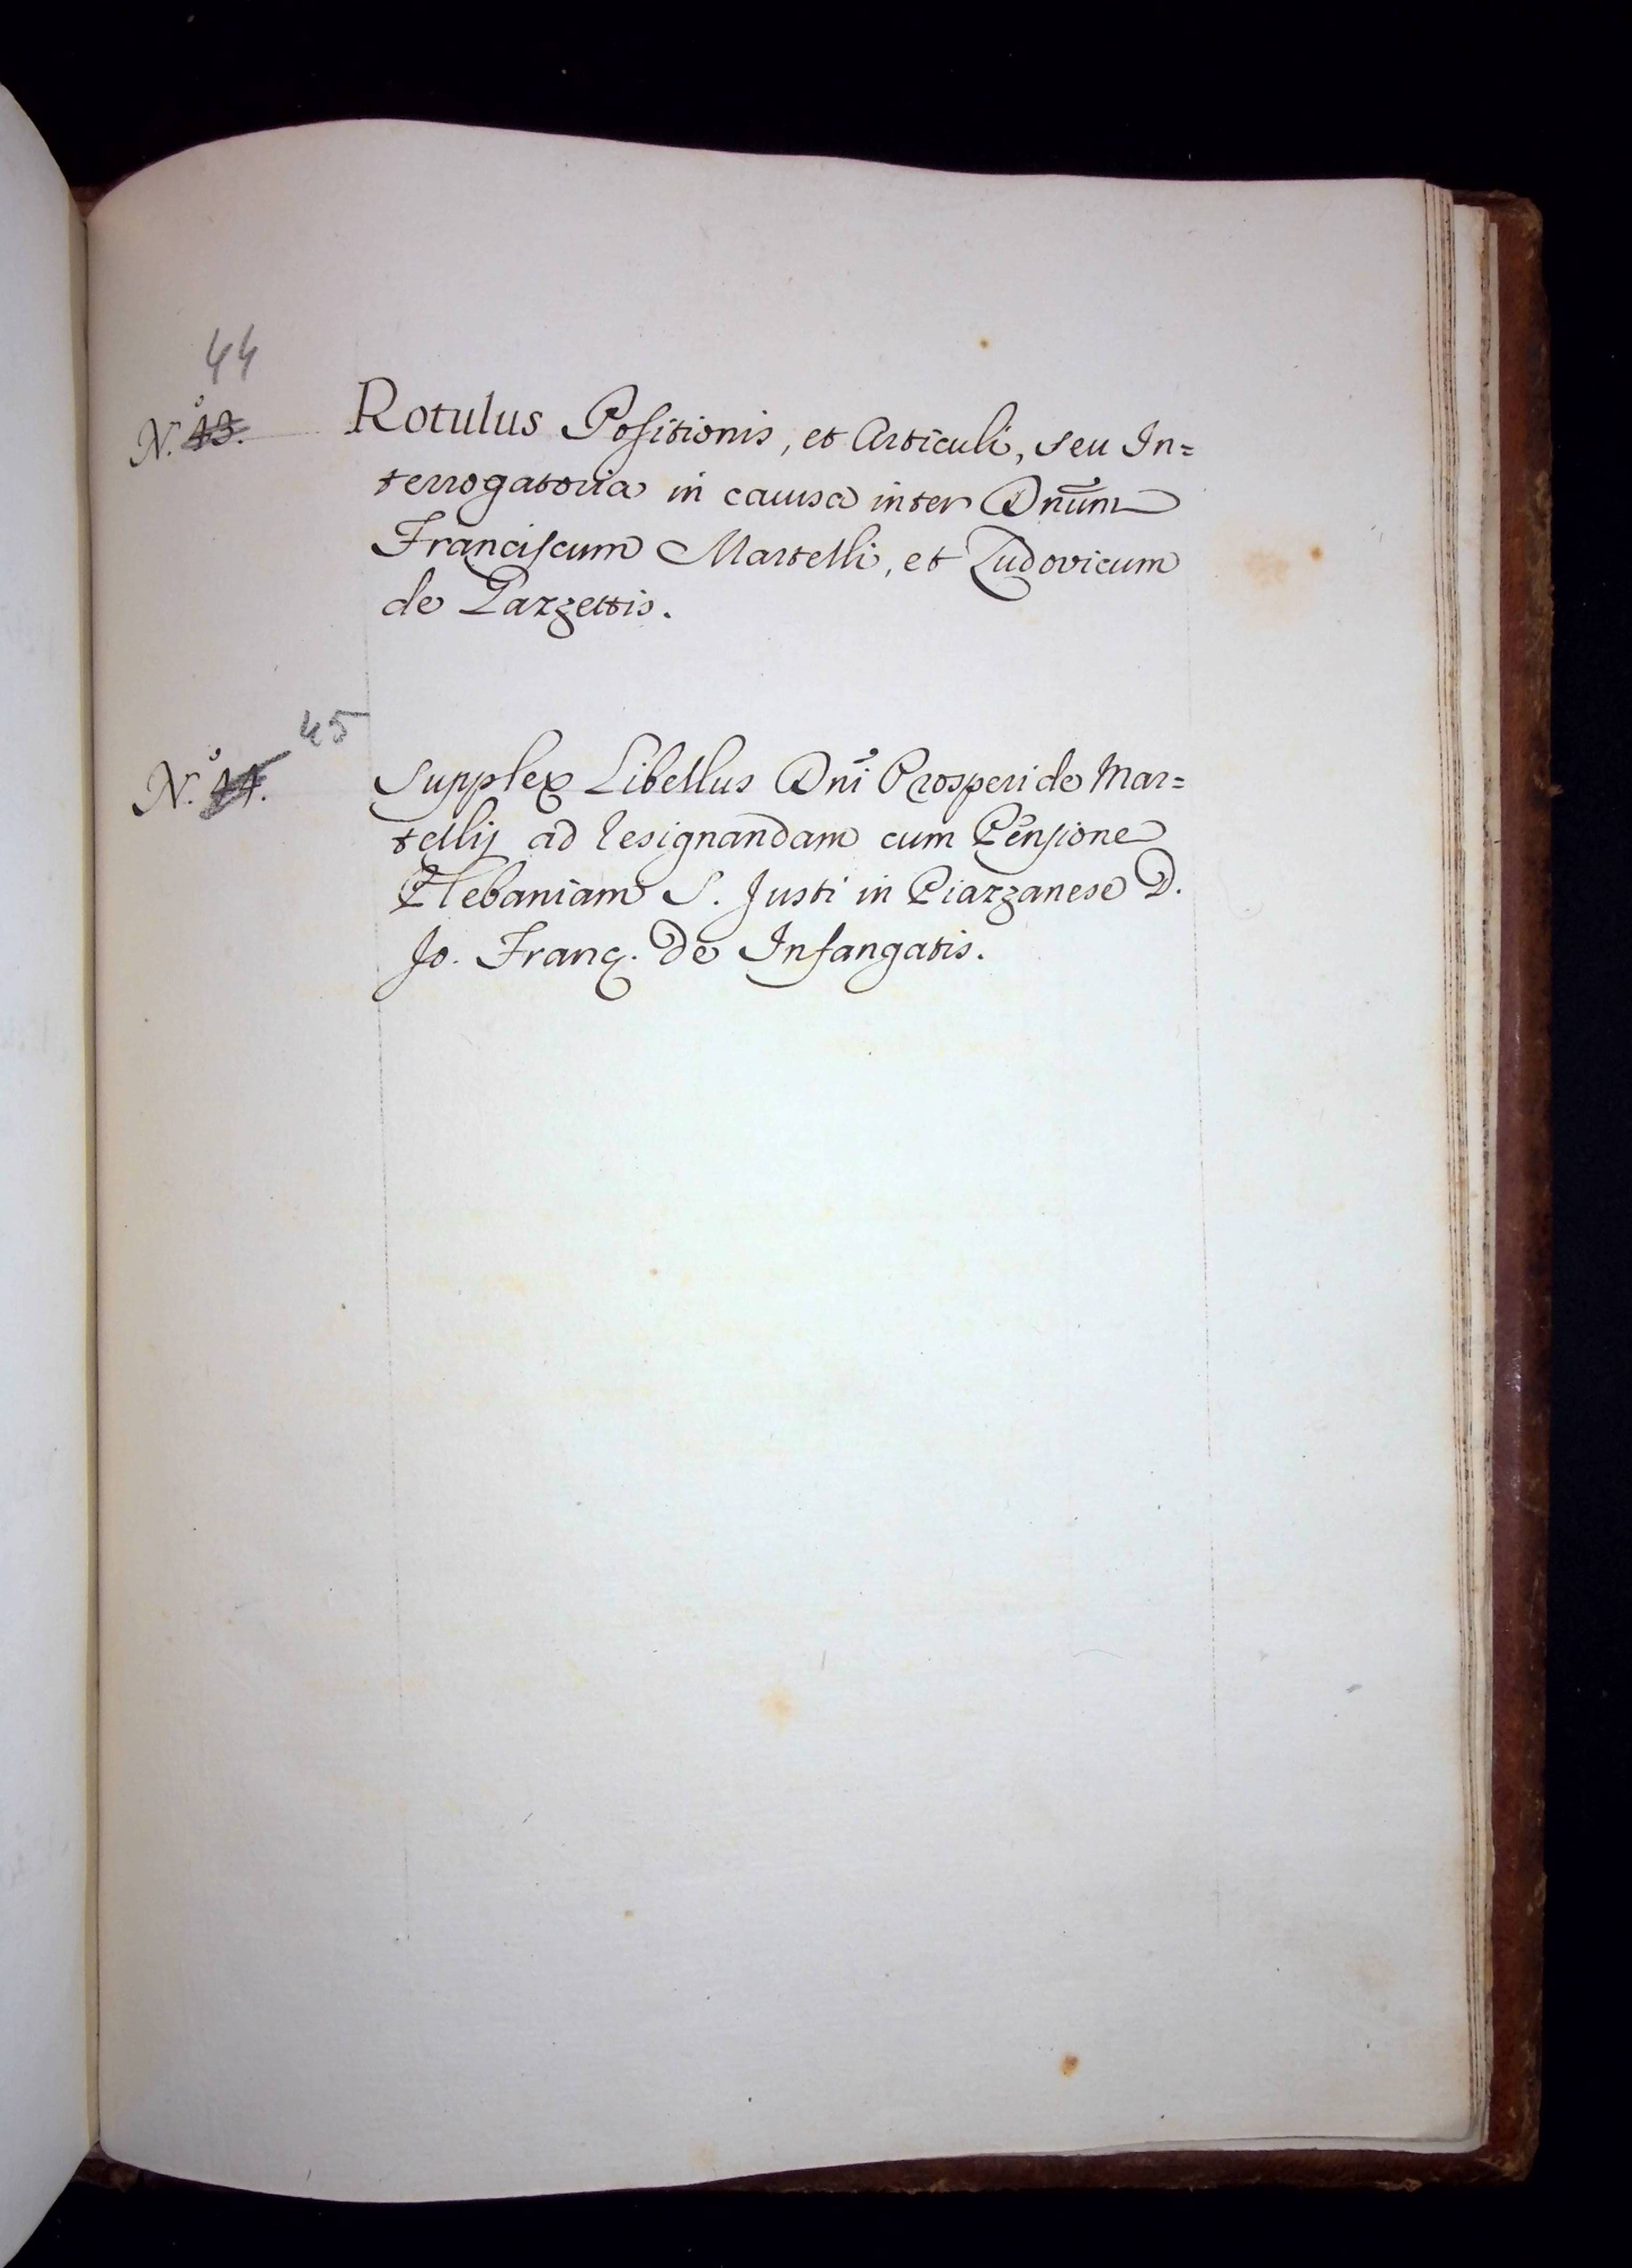 44
N.° 13. Rotulus Positionis, et Articuli, seu In=
terrogatoria in causa inter Dnūm
Franciscum Martelli, et Ludovicum
de Gazzettis.
45
N.° 14. Supplex Libellus Dni Prosperi de Mar=
tellij ad resignandam cum Pensione
Plebaniam S. Justi in Piazzanese D.
Jo. Franc. de Infangatis.